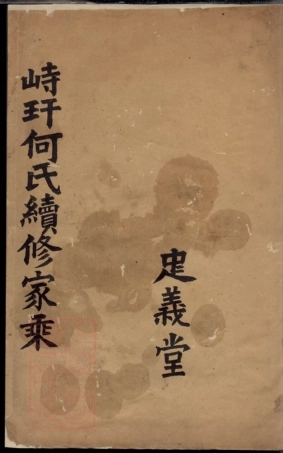 峙玕何氏續修家乘
忠義堂